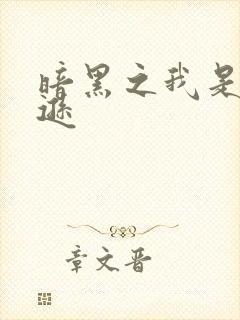 暗黑之我是
逊
章文晋